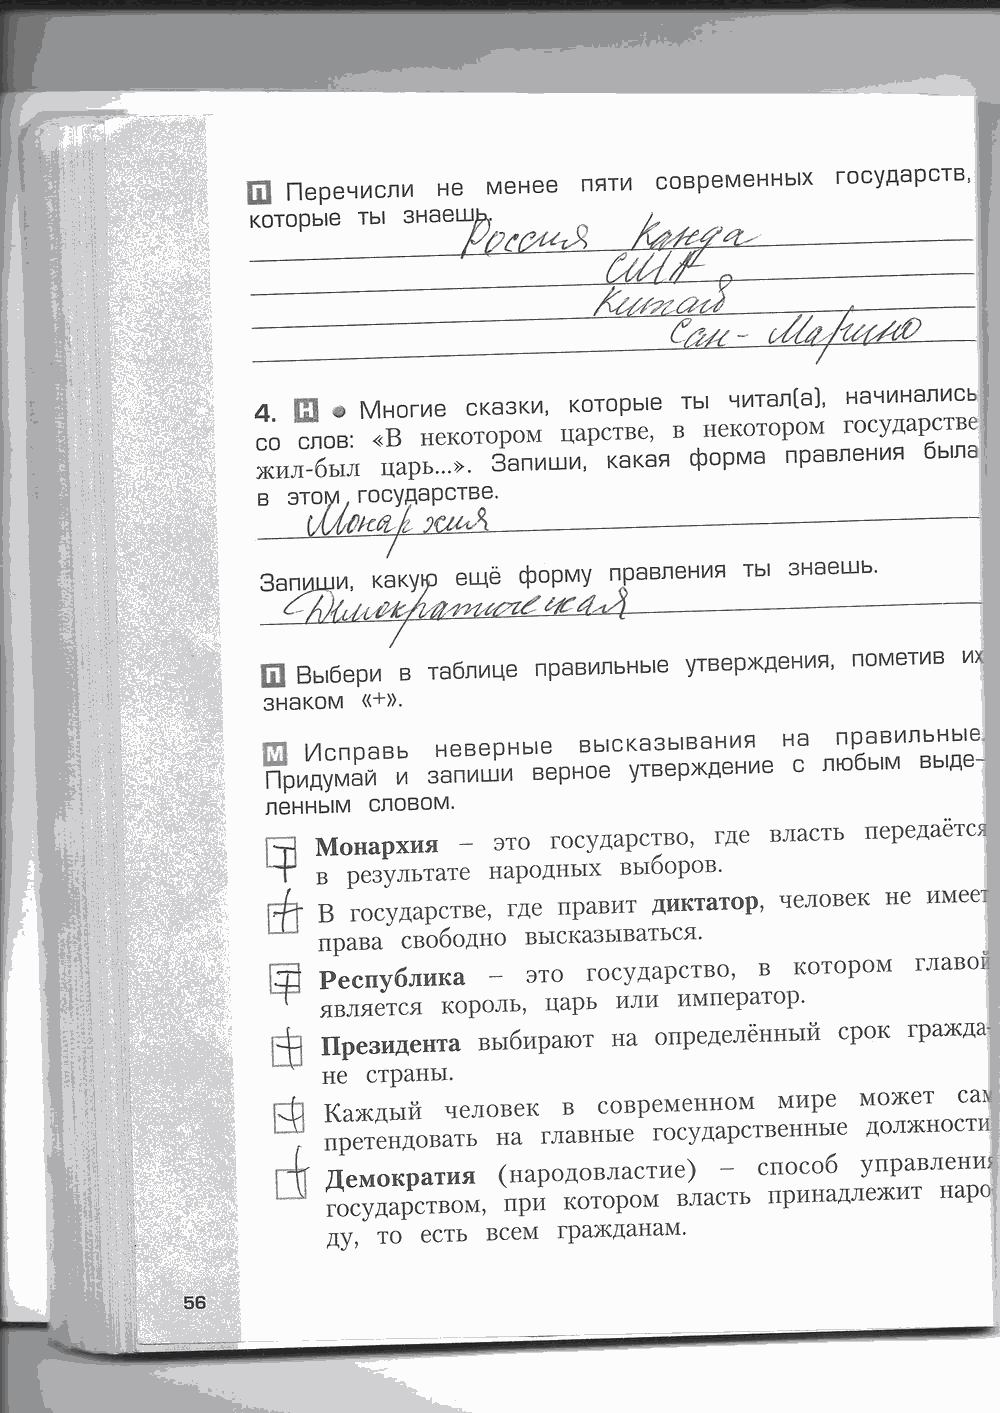 П Перечисли не менее пяти современных государств,
которые ты знаешь.
Россия Канда
США
Китай
Сан-Марино
4. Н • Многие сказки, которые ты читал(а), начинались
со слов: «В некотором царстве, в некотором государстве
жил-был царь...». Запиши, какая форма правления была
в этом государстве.
Монархия
Запиши, какую ещё форму правления ты знаешь.
Демократическая
П Выбери в таблице правильные утверждения, пометив их
знаком «+».
М Исправь неверные высказывания на правильные.
Придумай и запиши верное утверждение с любым выде-
ленным словом.
Монархия – это государство, где власть передаётся
в результате народных выборов.
+ В государстве, где правит диктатор, человек не имеет
права свободно высказываться.
Республика – это государство, в котором главой
является король, царь или император.
+ Президента выбирают на определённый срок гражда-
не страны.
+ Каждый человек в современном мире может сам
претендовать на главные государственные должности
+ Демократия (народовластие) – способ управления
государством, при котором власть принадлежит наро
ду, то есть всем гражданам.
56